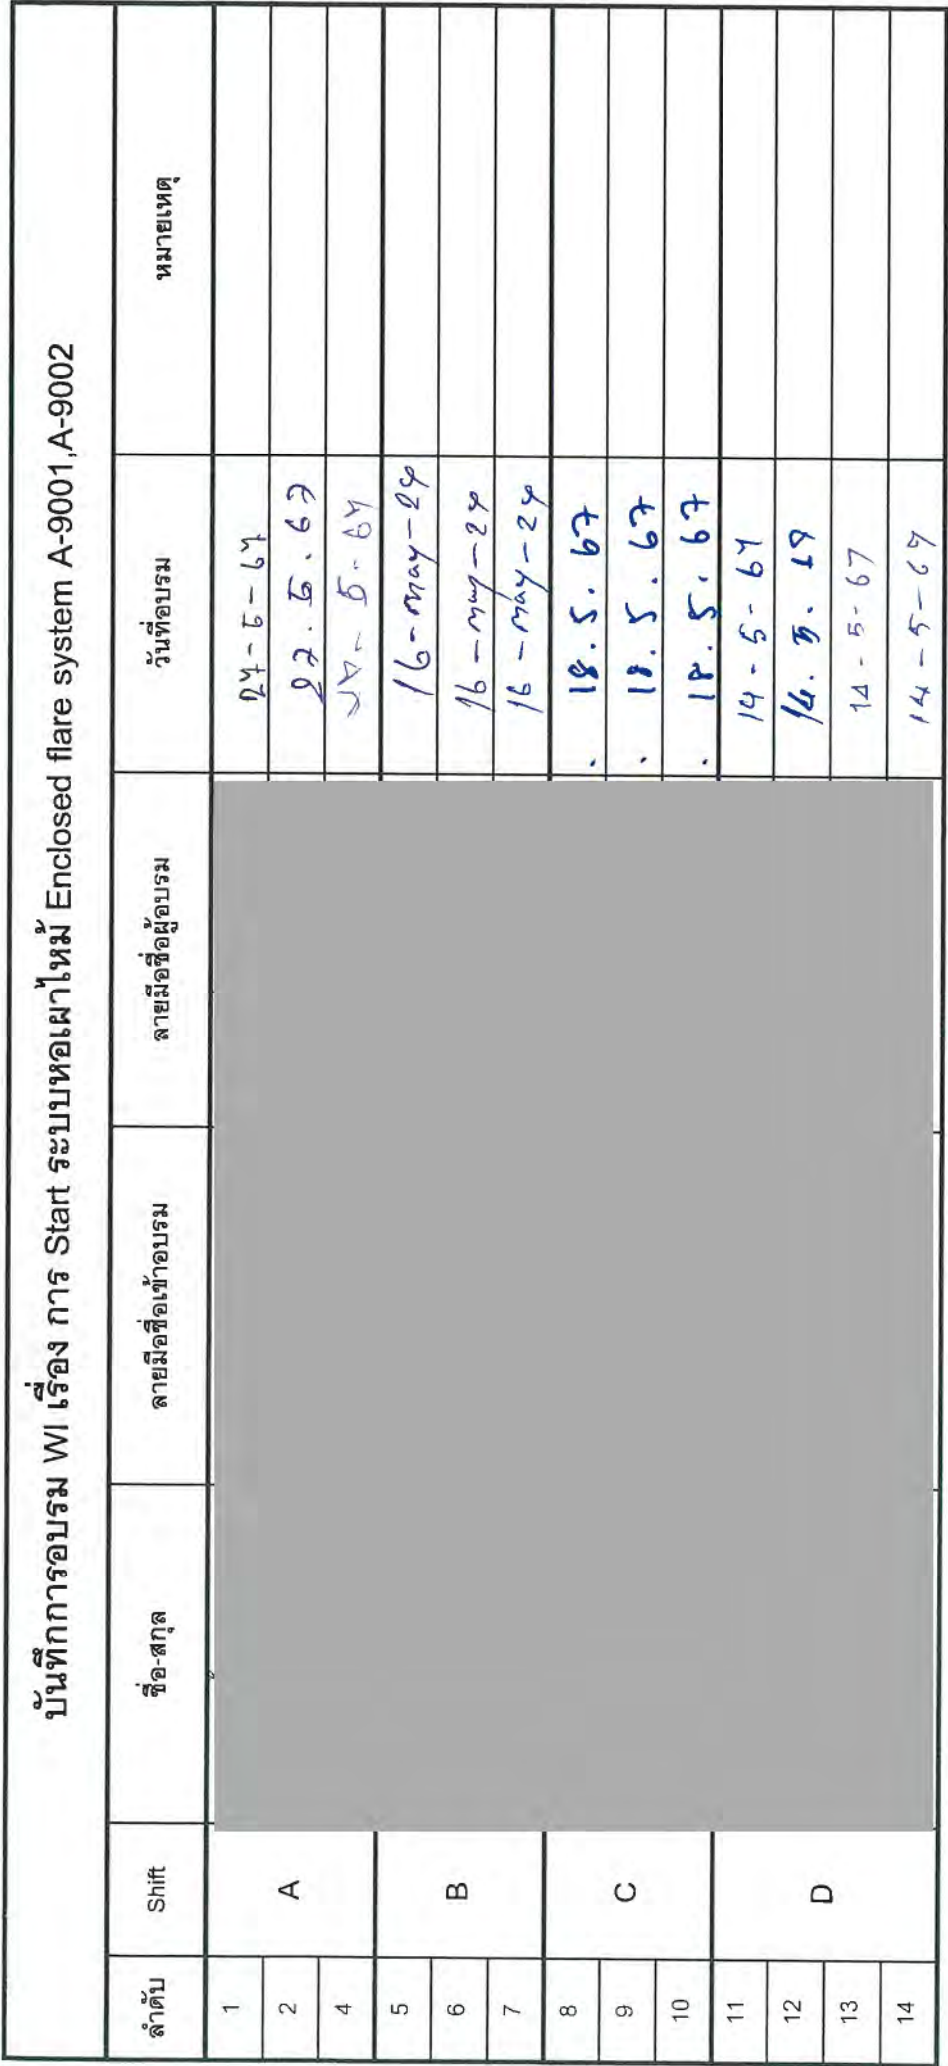 บันทึกการอบรม WI เรื่อง การ Start ระบบหอเผาไหม้ Enclosed flare system A-9001,A-9002
ลำดับ Shift ชื่อ-สกุล ลายมือชื่อเข้าอบรม ลายมือชื่อผู้อบรม วันที่อบรม หมายเหตุ
1
2 A 22.5.67
4
5 16-may-24
6 B 16-may-24
7 16-may-24
8 18.5.67
9 C 18.5.67
10 18.5.67
11 14-5-67
12 D 14.5.67
13 14-5-67
14 14-5-67